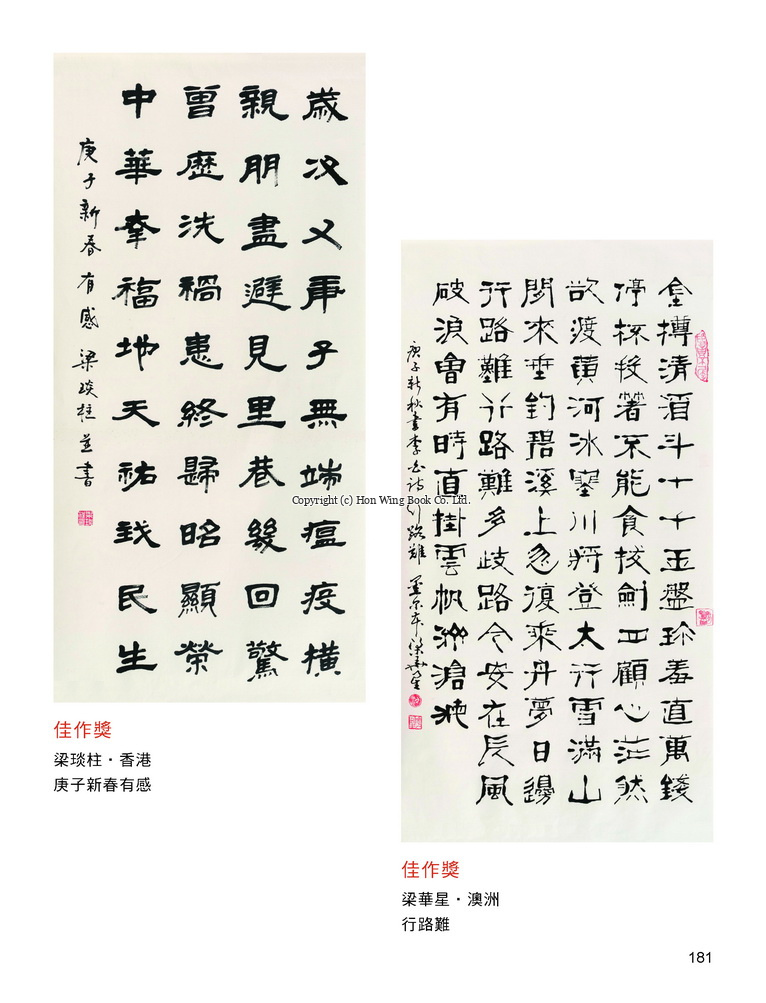 歲次又庚子無端瘟疫橫
親朋盡避見里巷幾回驚
曾歷洗禍患終歸昭顯榮
中華幸福地天祐我民生
庚子新春有感 梁琰柱並書
佳作獎
梁琰柱・香港
庚子新春有感
金樽清酒斗十千玉盤珍羞直萬錢
停杯投箸不能食拔劍四顧心茫然
欲渡黃河冰塞川將登太行雪滿山
閒來垂釣碧溪上忽復乘舟夢日邊
行路難行路難多歧路今安在長風
破浪會有時直掛雲帆濟滄海
庚子新秋書李白詩行路難 墨尔本梁華星
佳作獎
梁華星・澳洲
行路難
Copyright (c) Hon Wing Book Co. Ltd.
181